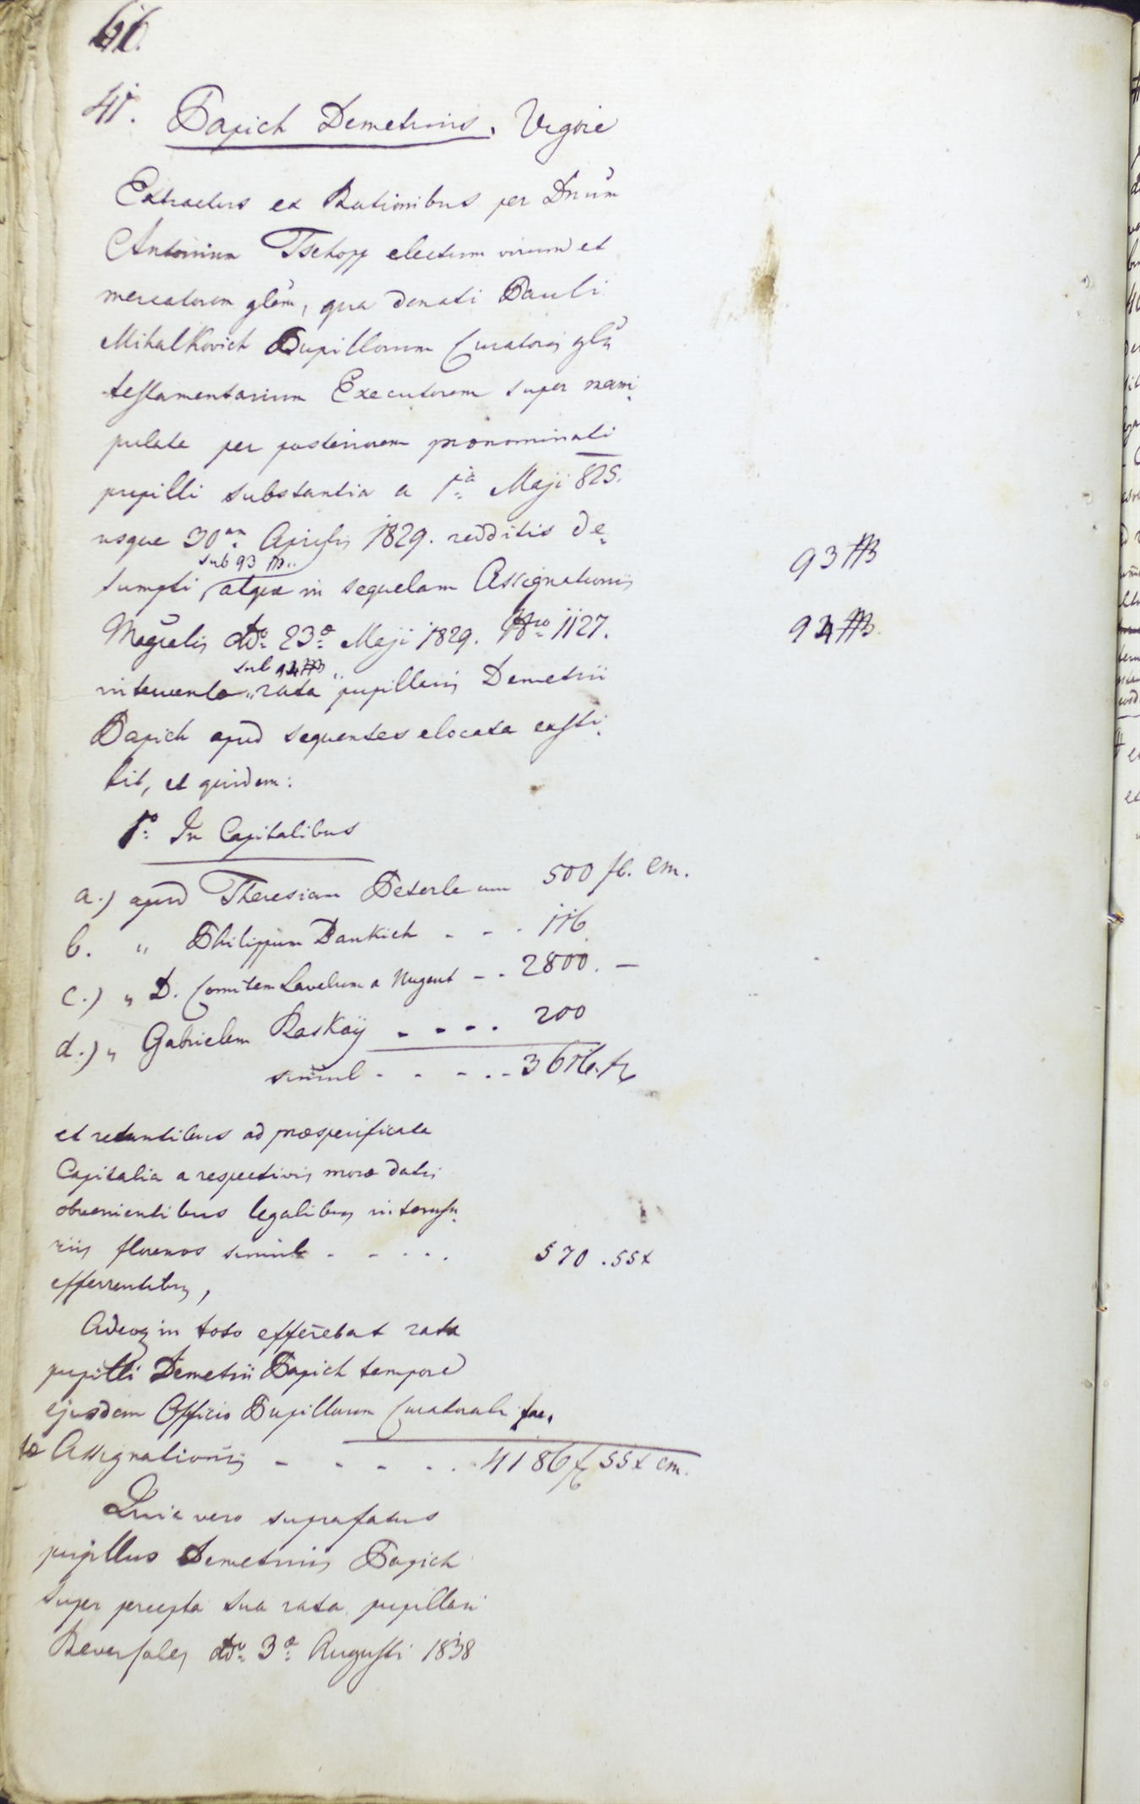 66.
41. Papich Demetrius. Vigore
Extractus ex Rationibus per Dnum
Antonium Tschopp electum virum et
mercatorem qua donati Pauli
Mihalkovich Pupillorum Curatoris
testamentarium Executorem super mani-
pulata per posteriorem pronominati
pupilli substantia a 1a Maji 825.
usque 30am Aprilis 1829. redditis de-
sub 93
sumpti, atque in sequelam Assignationis
93
Magralis ddo 23a Maji 1829. Nro 1127.
94
sub 94
intervento rata pupillaris Demetrii
Papich apud sequentes elocata exsti-
tit, et quidem:
1o In Capitalibus
a.) apud Theresiam Peterle 500 fl. cm.
b. " Philippum Dankich - - - 116
c.) " D. Comitem Lavalum a Nugent - - 2800. -
d.) " Gabrielem Raskaÿ - - - - 200
simul - - - - - 3616. f
et restantibus ad praespecificata
Capitalia a respectivis moro datis
obvenientibus legalibus interusu-
riis florenos simul - - - - 570 . 55x
efferrentibus,
Adeoq in toto efferebat rata
pupilli Demetrii Papich tempore
ejusdem Officio Pupillarum Curatorali fac-
tae Assignationis - - - - - 4186 f 55x cm.
Quia vero suprafatus
pupillus Demetrius Papich
super percepta sua rata pupillari
Reversales ddo 3a Augusti 1838